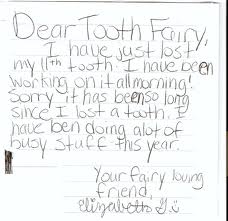 Dear Tooth Fairy,
I have just lost
my 11th tooth. I have been
working on it all morning!
Sorry it has been so long
since I lost a tooth. I
have ben doing alot of
busy stuff this year.
Your fairy loving
friend,
Elizabeth G